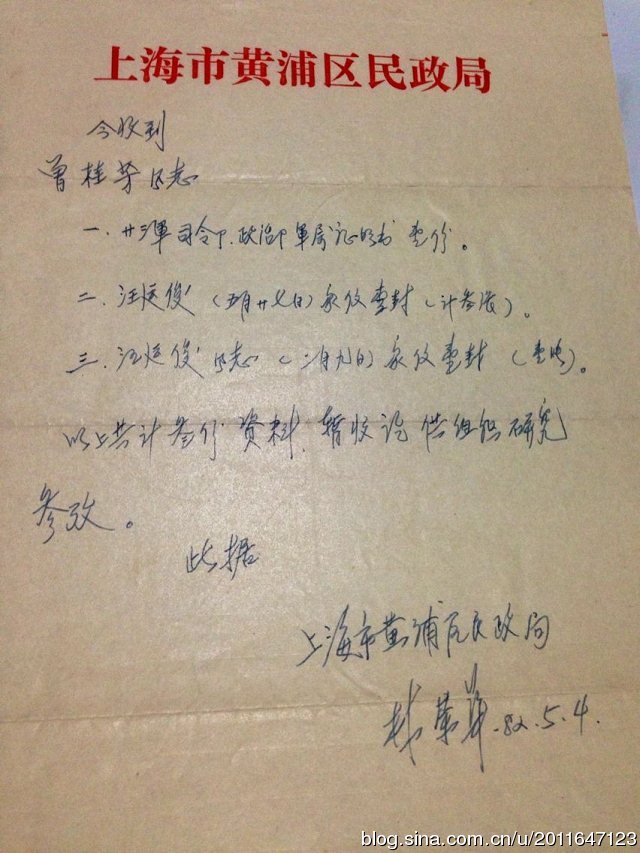 上海市黄浦区民政局
今收到
曾桂芳同志
一.廿三軍司令下.政治下軍属证明书壹份。
二.汪延俊(五月廿七日)家信壹封(计叁张)。
三.汪延俊同志(二月九日)家信壹封(壹张)。
以上共计叁份资料,暂收讫供组织研究
参攷。
此据
上海市黄浦区民政局
82.5.4.
blog.sina.com.cn/u/2011647123